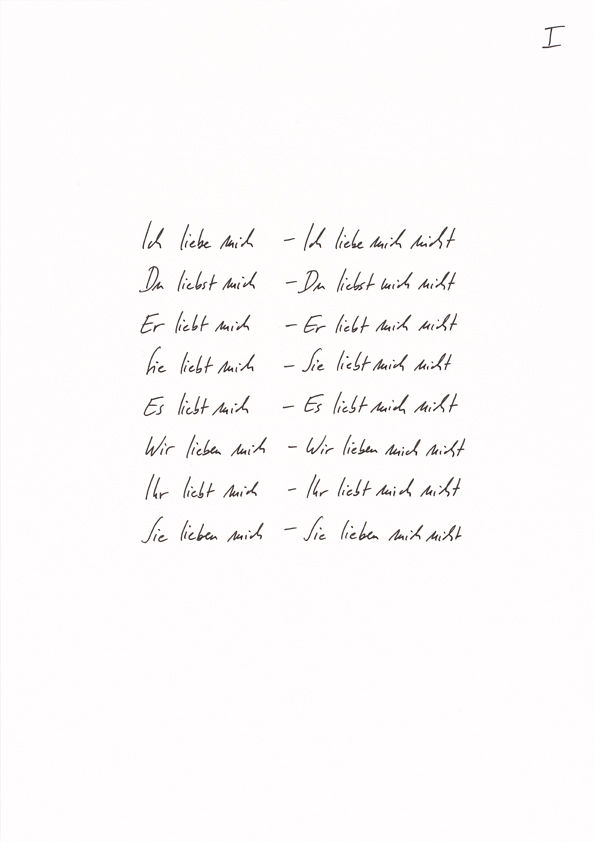 I
Ich liebe mich – Ich liebe mich nicht
Du liebst mich – Du liebst mich nicht
Er liebt mich – Er liebt mich nicht
Sie liebt mich – Sie liebt mich nicht
Es liebt mich – Es liebt mich nicht
Wir lieben mich – Wir lieben mich nicht
Ihr liebt mich – Ihr liebt mich nicht
Sie lieben mich – Sie lieben mich nicht